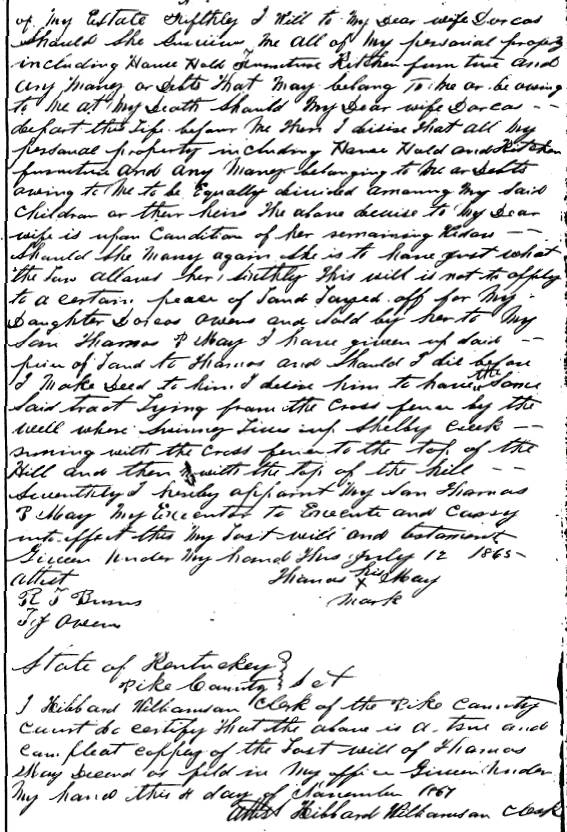 of My Estate Fifthly I Will to My Dear wife Dorcas
Should She Survive Me all of My personal property
including House Hold Furniture Kitchen furniture and
any Money or Debts That May belong To Me or be owing
to Me at My Death Should My Dear wife Dorcas --
depart this Life before Me Then I disise That all My
personal property including House Hold and Kitchen
furniture and any Money belonging to Me or Debts
owing to Me to be Equally divided amoung My said
Children or their heirs The above devise to My Dear
wife is upon Condition of her remaining Widow --
Should She Marry again She is to have just what
the Law allows her, Sixthly This will is not to apply
to a certain peace of Land Layed off for My
Daughter Dorcas Owens and Sold by her to My
Son Thomas P May I have given up Said --
piece of Land to Thomas and Should I die before
I Make Deed to him I desire him to have the Same
Said tract Lying from the Cross fence by the
well where Lives up Shelby Creek --
runing with the Cross fence to the top of the
Hill and then with the top of the hill --
Seventhly I hereby appoint My Son Thomas
P May My Executer to Execute and Carry
into effect this My Last will and testament
Given Under My hand This July 12 1865 -
Attest Thomas his X May
R T Burns Mark
T J Owens
State of Kentucky }
Pike County } Sct
I Hibbard Williamson Clerk of the Pike County
Court do certify That the above is a true and
compleat coppy of the Last will of Thomas
May Decend as fild in My office Given Under
My hand this 4 day of November 1867
Attest Hibbard Williamson Clerk